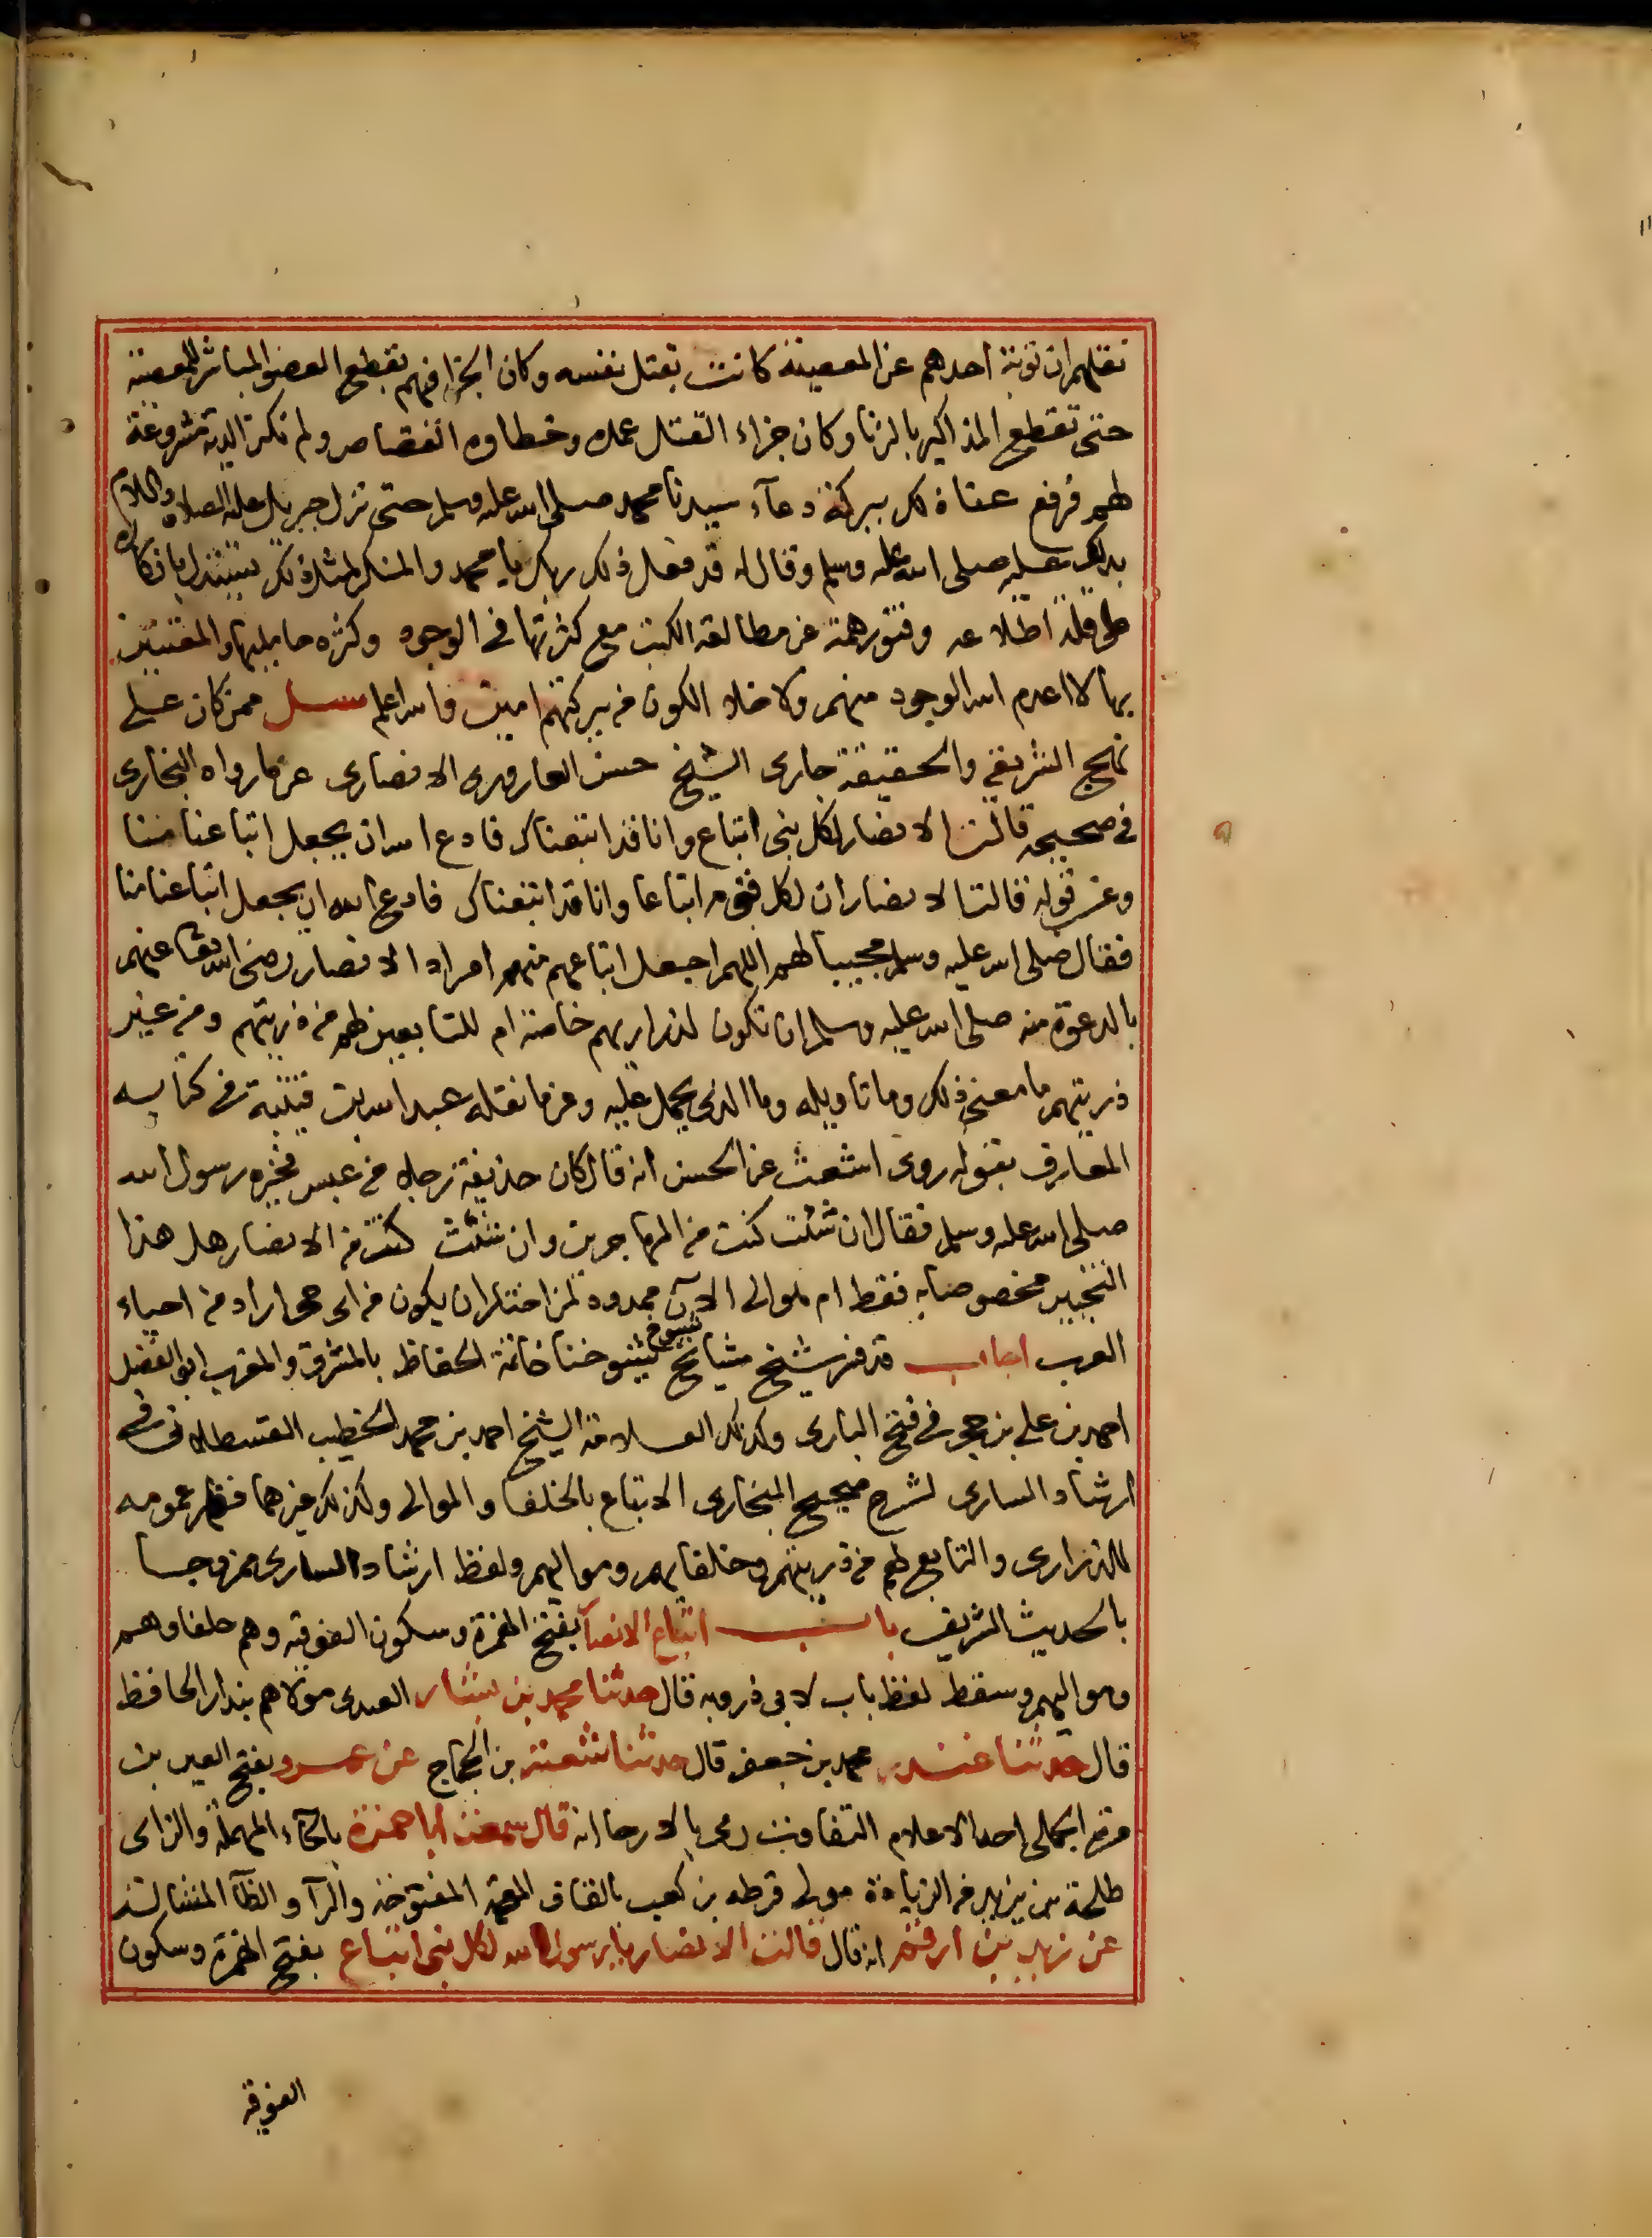 نقلهم ان توبة احدهم عن المعصية كانت بقتل نفسه وكان الجزا فيهم بقطع العضو المباشر للمعصية
حتى تقطع المذاكير بالزنا وكان جزاء القتل عمده وخطاوه القصاص ولم تكن الدية مشروعة
لهم فرفع عنا ذلك ببركة دعآء سيدنا محمد صلى الله عليه وسلم حتى نزل جبريل عليه الصلاة والسلام
بذلك عليه صلى الله عليه وسلم وقال له قد فعل ذلك ربك يا محمد والمنكر لمثل ذلك يستدل بانكاره
على قلة اطلاعه وفتور همته عن مطالعة الكتب مع كثرتها في الوجود وكثره حامليها والمعتنين
بها لا اعدم الله الوجود منهم ولا خلا الكون من بركتهم امين والله اعلم سيل ممن كان على
نهج الشريعة والحقيقة جارى الشيخ حسن العارورى الانصارى عن ما رواه البخارى
في صحيحه قالت الانصار لكل نبى اتباع وانا قد اتبعناك فادع الله ان يجعل اتباعنا منا
وعن قوله قالت الانصار ان لكل قوم اتباعا وانا قد اتبعناك فادع الله ان يجعل اتباعنا منا
فقال صلى الله عليه وسلم مجيبا لهم اللهم اجعل اتباعهم منهم امراد الانصار رضى الله تعا عنهم
بالدعوة منه صلى الله عليه وسلم ان تكون لذراريهم خاصة ام للتابعين لهم من ذريتهم ومن غير
ذريتهم ما معنى ذلك وما تاويله وما الذى يحمل عليه وعن ما نقله عبد الله بن قتيبة في كتابه
المعارف بقوله روى اشعث عن الحسن انه قال كان حذيفة رجلا من عبس فخيره رسول الله
صلى الله عليه وسلم فقال ان شئت كنت من المهاجرين وان شئت كنت من الانصار هل هذا
التخيير مخصوصا به فقط ام لموالى الان ممدود لمن اختار ان يكون من اى حى اراد من احياء
العرب اجاب قد فسر شيخ مشايخ شيوخ شيوخنا خاتمة الحفاظ بالمشرق والمغرب ابو الفضل
احمد بن على بن حجر في فتح البارى وكذلك العلامة الشيخ احمد بن محمد الخطيب القسطلانى في
ارشاد السارى لشرح صحيح البخارى الاتباع بالحلفا والموالى وكذلك غيرهما فظهر عمومه
للذرارى والتابع لهم من ذريتهم وحلفايهم ومواليهم ولفظ ارشاد السارى ممزوجا
بالحديث الشريف باب اتباع الانصار بفتح الهمزة وسكون الفوقية وهم حلفاوهم
ومواليهم وسقط لفظ باب لابى ذر وبه قال حدثنا محمد بن بشار العبدى مولاهم بندار الحافظ
قال حدثنا غندر محمد بن جعفر قال حدثنا شعبة بن الحجاج عن عمرو بفتح العين بن
مرة الجملى احد الاعلام الثقات رمى بالارجا انه قال سمعت ابا حمزة بالحاء المهملة والزاى
طلحة بن يزيد من الزيادة مولى قرظه بن كعب بالقاف المفتوحة والرآ والظآ المشالة
عن زيد بن ارقم انه قال قالت الانصار يا رسول الله لكل نبى اتباع بفتح الهمزة وسكون
الفوقية